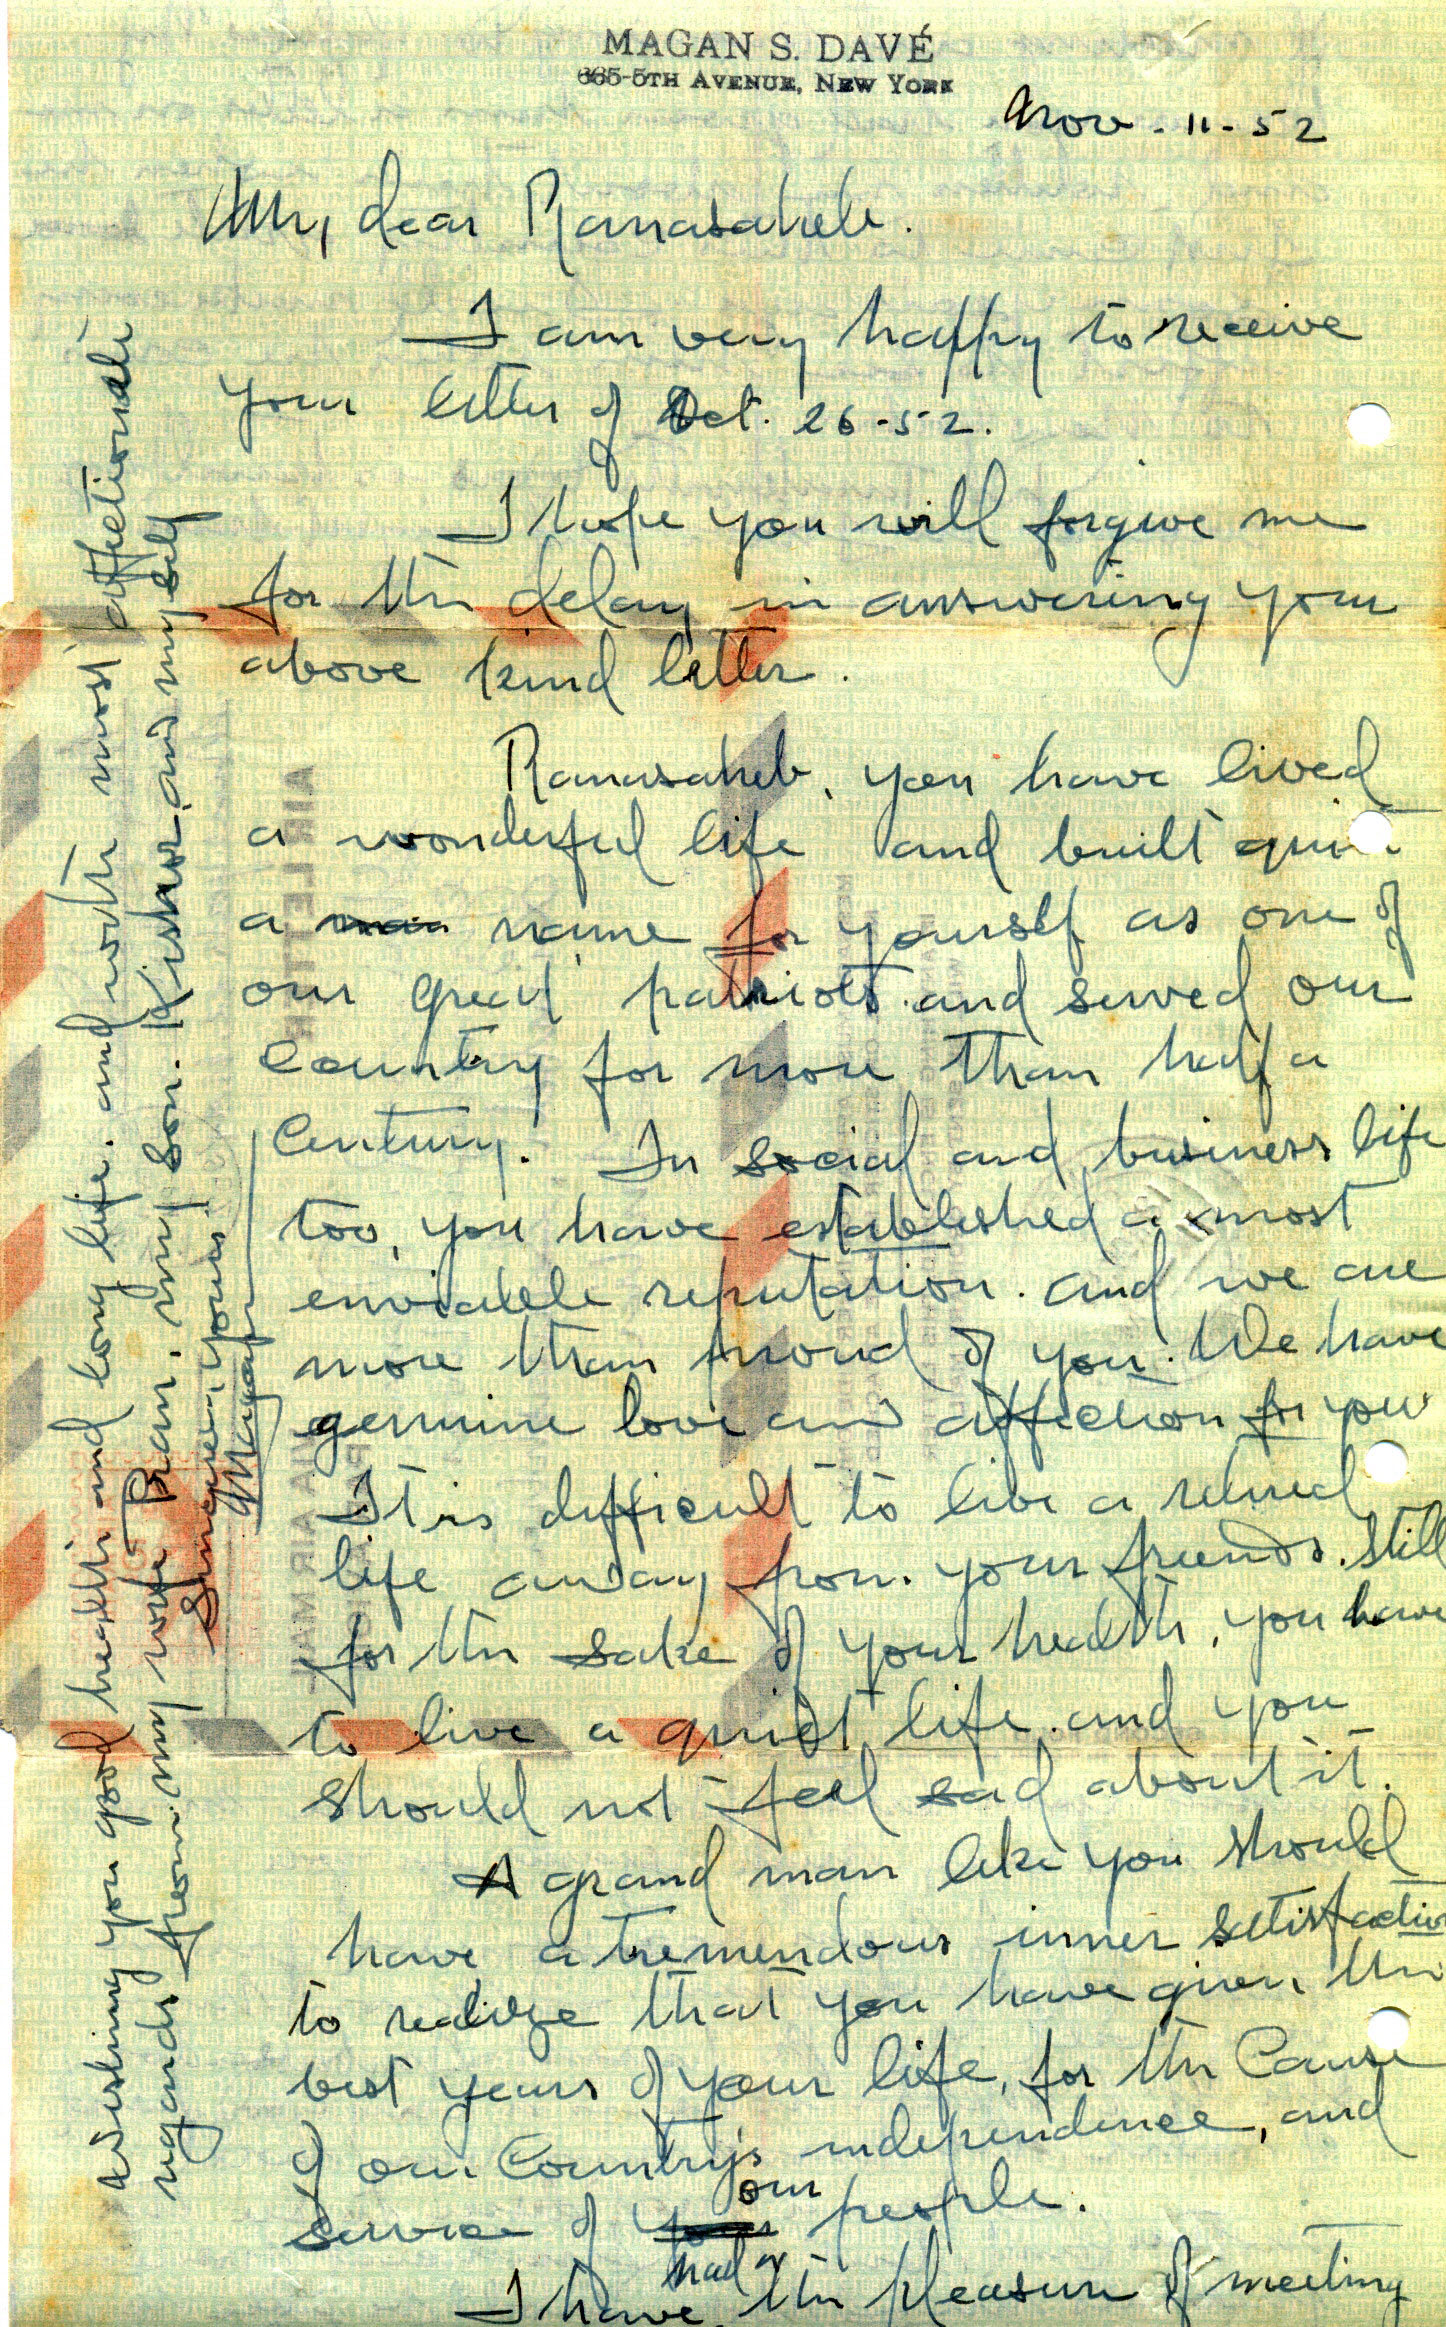 MAGAN S. DAVÉ
665-5TH AVENUE, NEW YORK
Nov - 11 - 52
My dear Ranasaheb.
I am very happy to receive
your letter of Oct. 26-52.
I hope you will forgive me
for the delay in answering your
above kind letter.
Ranasaheb, you have lived
a wonderful life and built quit
a name for yourself as one of
our great patriots. and served our
Country for more than half a
Century. In social and business life
too, you have established a most
enviable reputation. and we are
more than proud of you. We have
genuine love and affection for you
It is difficult to live a retired
life away from your friends. Still
for the sake of your health, you have
to live a quiet life. and you
should not feel sad about it.
A grand man like you should
have a tremendous inner satisfaction
to realize that you have given the
best years of your life, for the Cause
of our Country's independence, and
service of our people.
I have had the pleasure of meeting
Wishing you good health and long life. and with most affectionate
regards from my wife Bean, my son. Kishor, and myself
Sincerely yours
Magan
AIR LETTER